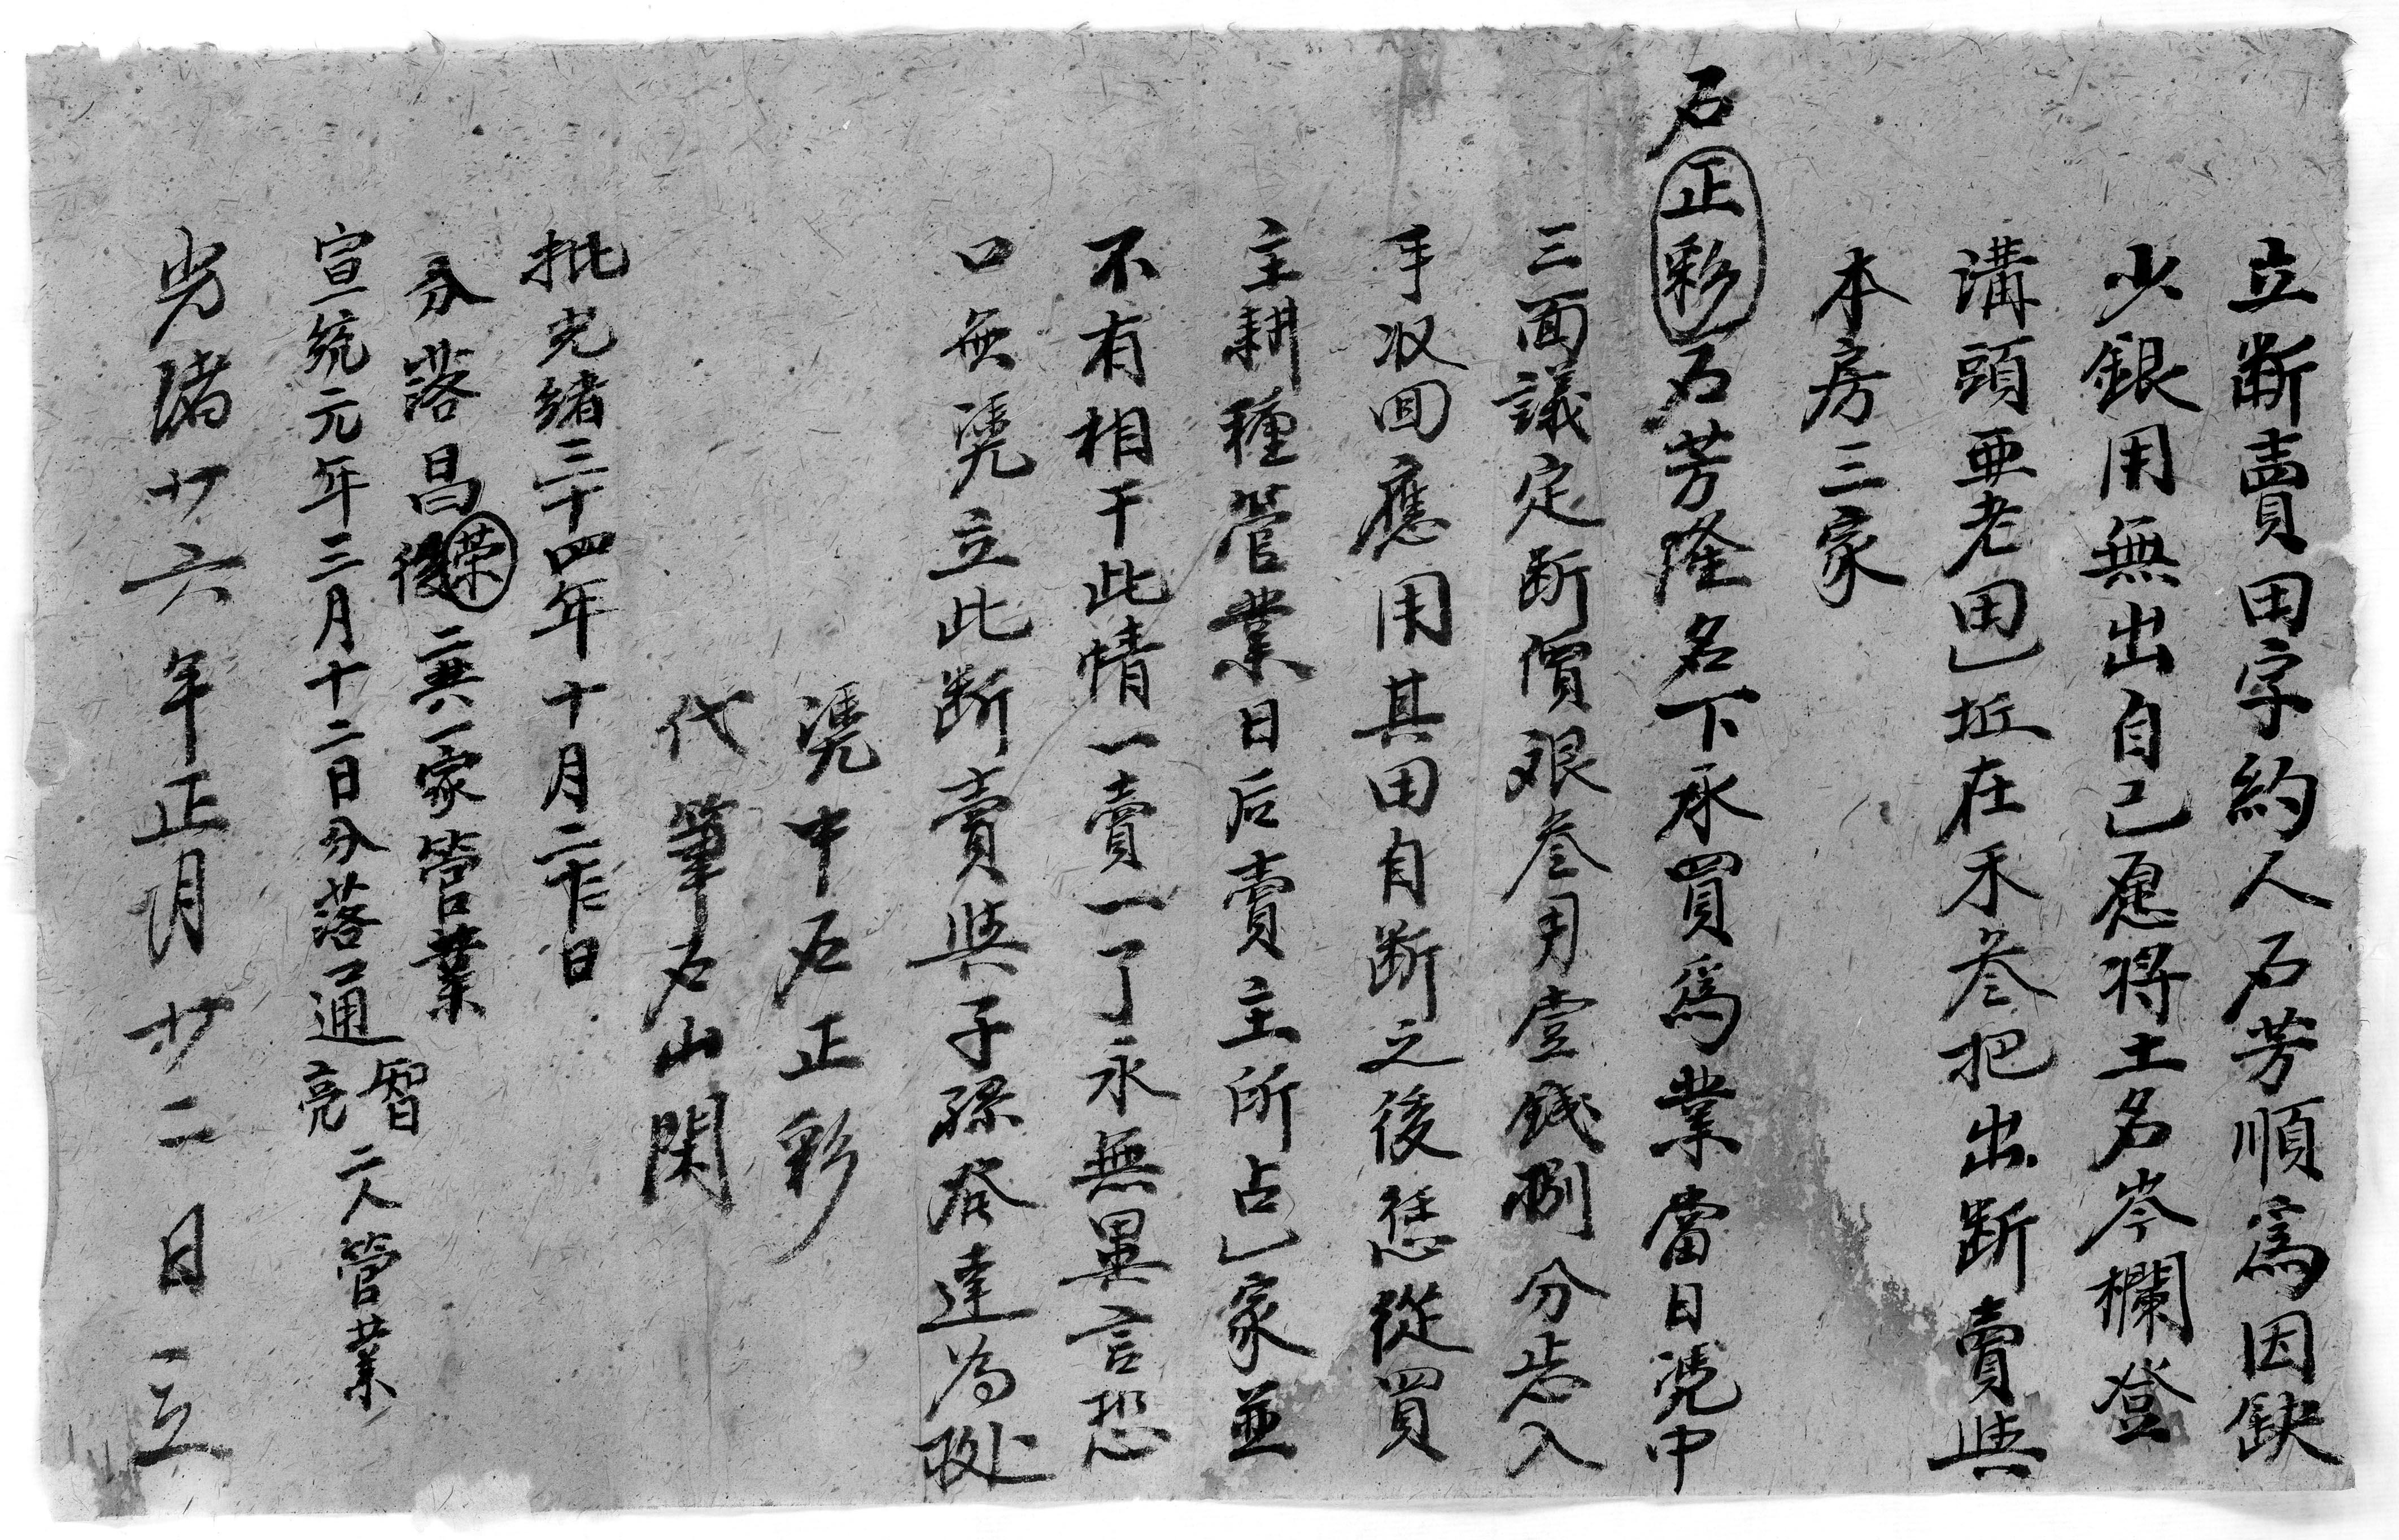 立断賣田字約人石芳順爲因缺
少銀用無出自己愿将土名岑欄登
溝頭亜老田乚坵在禾叁把出断賣與
本房三家
石正彩石芳隆名下承買爲業當日凴中
三面議定断價艮叁用壹錢捌分志入
手収回應用其田自断之後恁從買
主耕種管業日后賣主所占乚家並
不有相干此情一賣一了永無異言恐
口無凴立此断賣與子孫發達為処
凴中石正彩
代筆石山閑
批光绪三十四年十月二十日
分落昌後榮二共一家管業
宣統元年三月十二日分落通智亮二人管業
光緒廿六年正月廿二日立